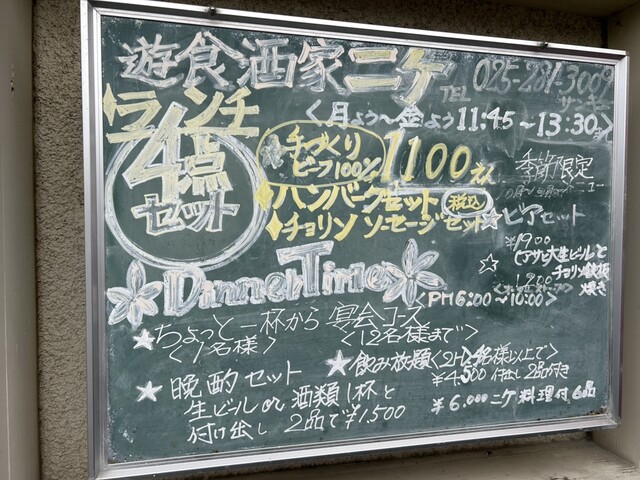 遊食酒家ニケ
TEL 025-281-3009
サンキュー
ランチ
4点
セット
<月よう〜金よう11:45〜13:30>
手づくり
ビーフ100%
1100えん
税込
ハンバーグセット
チョリソ ソーセージセット
季節限定
ビアセット
¥1900
アサヒ大生ビールと
チョリソ鉄板
焼き
Dinner Time
<PM6:00〜10:00>
ちょっと一杯から 宴会コース
<1名様> <12名様まで>
晩酌セット
生ビール or 酒類1杯と
付け出し 2品で¥1,500
飲み放題
¥4,500 付出し2品付き
¥6,000ニケ料理付6品